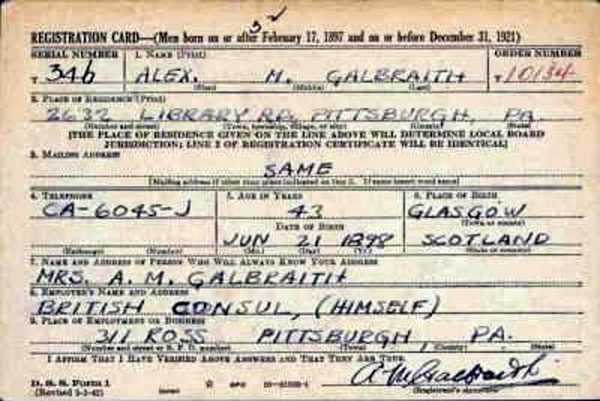 3 ✓
REGISTRATION CARD—(Men born on or after February 17, 1897 and on or before December 31, 1921)
SERIAL NUMBER 1. NAME (Print) ORDER NUMBER
T 346 ALEX. M. GALBRAITH T 10134
(First) (Middle) (Last)
2. PLACE OF RESIDENCE (Print)
2632 LIBRARY RD, PITTSBURGH, PA.
(Number and street) (Town, township, village, or city) (County) (State)
[THE PLACE OF RESIDENCE GIVEN ON THE LINE ABOVE WILL DETERMINE LOCAL BOARD
JURISDICTION; LINE 2 OF REGISTRATION CERTIFICATE WILL BE IDENTICAL]
3. MAILING ADDRESS
SAME
[Mailing address if other than place indicated on line 2. If same insert word same]
4. TELEPHONE 5. AGE IN YEARS 6. PLACE OF BIRTH
CA-6045-J 43 GLASGOW
DATE OF BIRTH (Town or county)
JUN 21 1898 SCOTLAND
(Exchange) (Number) (Mo.) (Day) (Yr.) (State or country)
7. NAME AND ADDRESS OF PERSON WHO WILL ALWAYS KNOW YOUR ADDRESS
MRS. A. M. GALBRAITH
8. EMPLOYER'S NAME AND ADDRESS
BRITISH CONSUL, (HIMSELF)
9. PLACE OF EMPLOYMENT OR BUSINESS
311 ROSS PITTSBURGH PA.
(Number and street or R. F. D. number) (Town) (County) (State)
I AFFIRM THAT I HAVE VERIFIED ABOVE ANSWERS AND THAT THEY ARE TRUE.
D. S. S. Form 1 A M Galbraith
(Revised 5-2-42) (Registrant's signature)